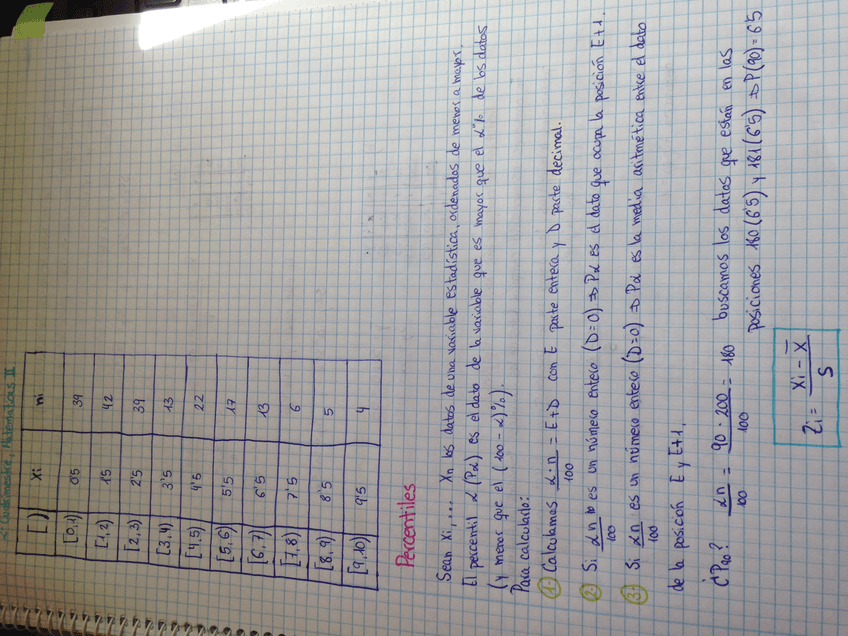 2º Cuatrimestre, Matemáticas II
[ ) Xi ni
[0,1) 0'5 39
[1,2) 1'5 42
[2,3) 2'5 39
[3,4) 3'5 13
[4,5) 4'5 22
[5,6) 5'5 17
[6,7) 6'5 13
[7,8) 7'5 6
[8,9) 8'5 5
[9,10) 9'5 4
Percentiles
Sean Xi,... Xn los datos de una variable estadística, ordenados de menor a mayor.
El percentil α (Pα) es el dato de la variable que es mayor que el α% de los datos
(y menor que el (100 - α)%).
Para calcularlo:
① Calculamos α·n/100 = E+D con E parte entera y D parte decimal.
② Si αn/100 no es un número entero (D=0) ⇒ Pα es el dato que ocupa la posición E+1.
③ Si αn/100 es un número entero (D=0) ⇒ Pα es la media aritmética entre el dato
de la posición E y E+1.
¿P90? αn/100 = 90·200/100 = 180 buscamos los datos que están en las
posiciones 180 (6'5) y 181 (6'5) ⇒ P(90) = 6'5
Zi = Xi - X̄ / S